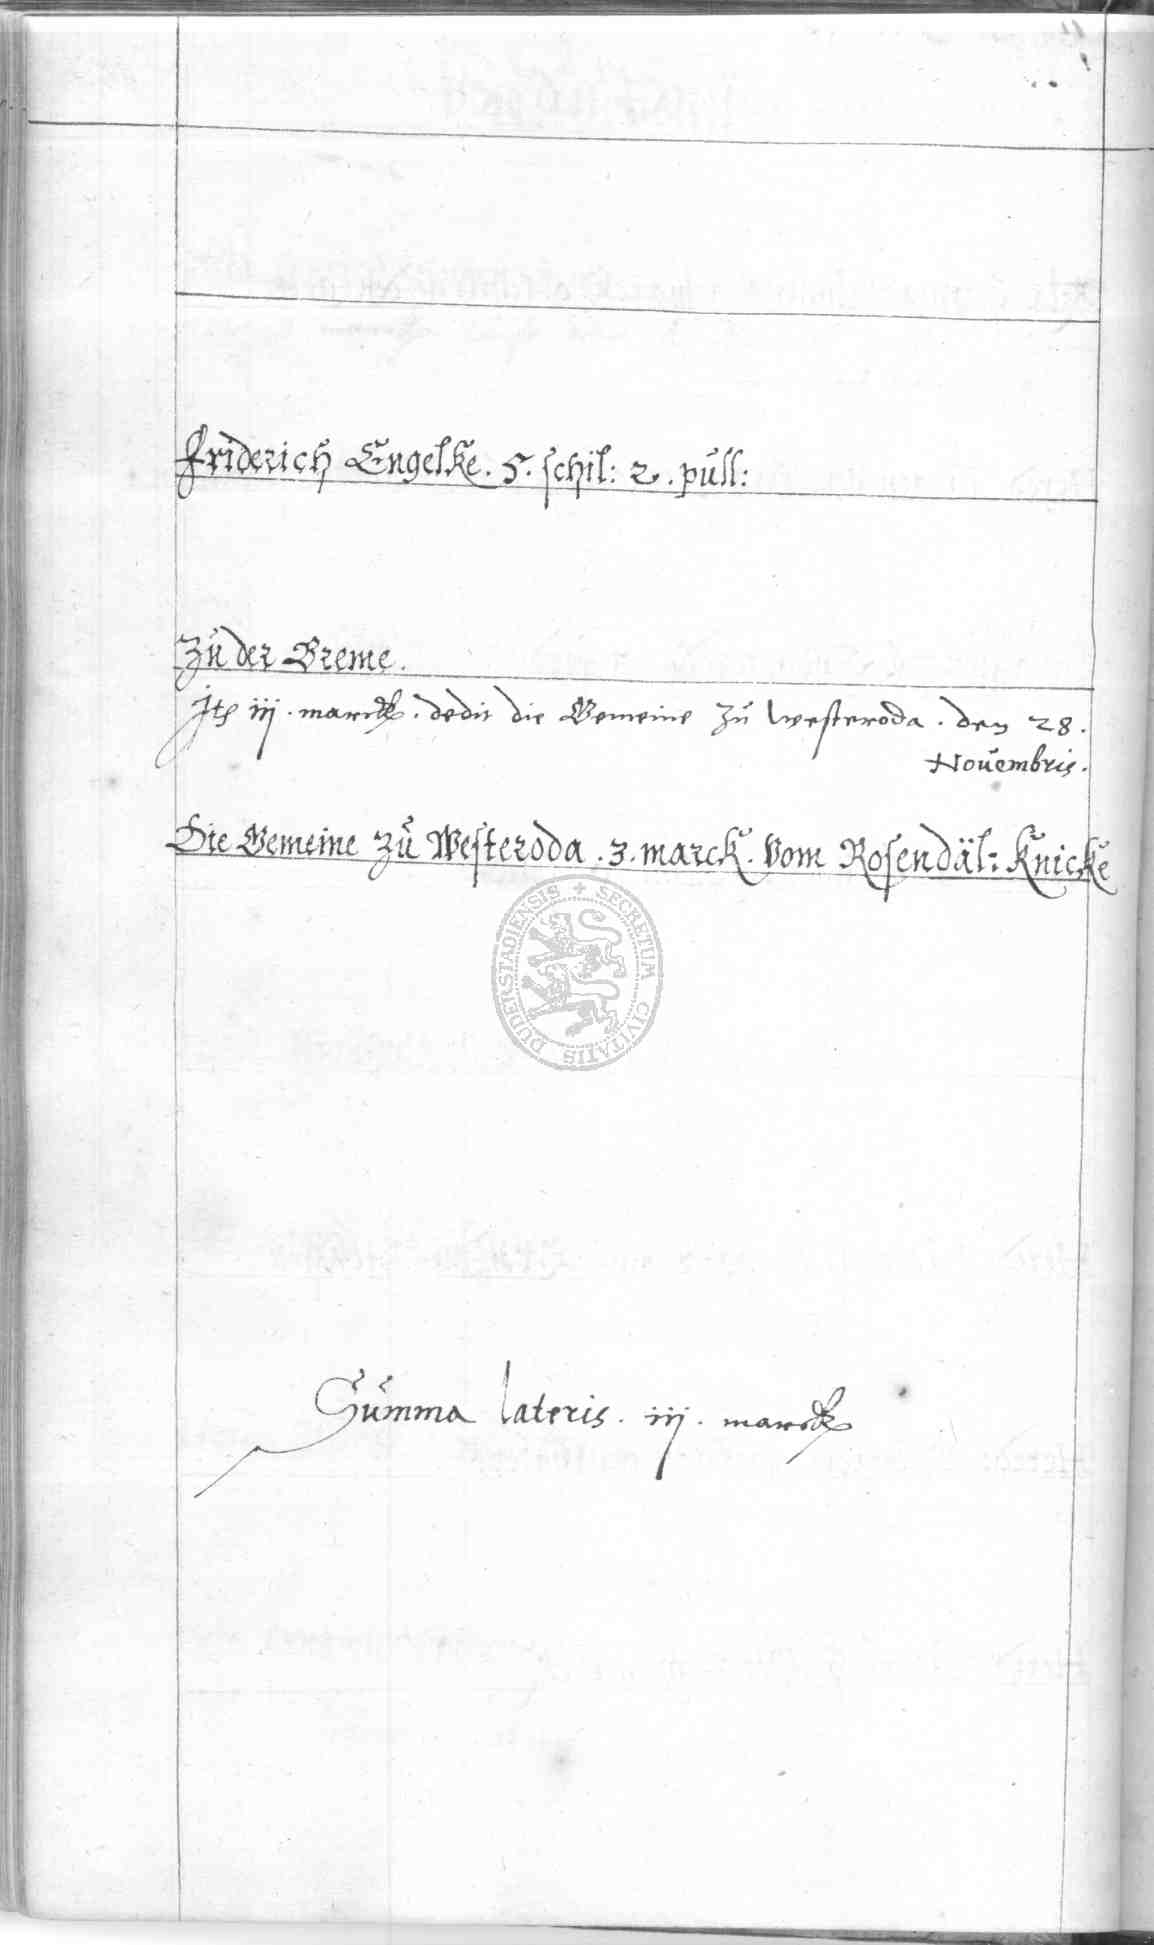 Friderich Engelke. 5. schil: 2. pull:
Zu der Breme.
Jtp iij. marck. dedit die Gemeine zu Westeroda. den 28.
Nouembris.
Die Gemeine zu Westeroda. 3. marck. vom Rosendäl: Knicke
SECRETUM CIVITATIS DUDERSTADIENSIS
Summa lateris. iij. marck